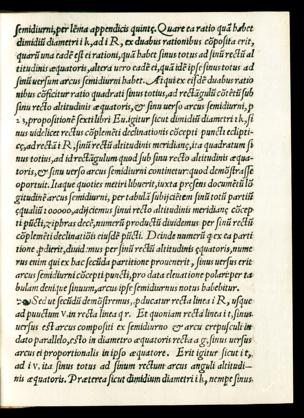 semidiurni, per lẽma appendicis quintę. Quare ea ratio quã habet
dimidiũ diametri i h, ad i R, ex duabus rationibus cõposita erit,
quarũ una cadẽ est ei rationi, quã habet sinus totus ad sinũ rectũ al
titudinis æquatoris, altera uero cadẽ ei, quã idẽ ipse sinus totus ad
sinũ uersum arcus semidiurni habet. Atqui ex eisdẽ duabus ratio
nibus cõficitur ratio quadrati sinus totius, ad rectãgulũ cõtẽtũ sub
sinu recto altitudinis æquatoris, & sinu uerso arcus semidiurni, p
23, propositionẽ sexti libri Eu. igitur sicut dimidiũ diametri i h, si
nus uidelicet rectus cõplemẽti declinationis cõcepti puncti eclipti-
cę, ad recta i R, sinũ rectũ altitudinis meridianę, ita quadratum si
nus totius, ad id rectãgulum quod sub sinu recto altitudinis æqua-
toris, & sinu uerso arcus semidiurni continetur: quod demõstrasse
oportuit. Itaque quoties metiri libuerit, iuxta præsens documẽtũ lõ
gitudinẽ arcus semidiurni, per tabulã subiectẽtem sinũ totũ partiũ
ęqualiũ 100000, adijciemus sinui recto altitudinis meridianę cõcep
ti pũcti, 5 ziphras decẽ, numerũ productũ diuidemus per sinũ rectũ
cõplemẽti declinatiõis eiusdẽ pũcti. Deinde numerũ q̃ ex ea parti
tione, pdierit, diuidimus per sinũ rectũ altitudinis ęquatoris, nume-
rus enim qui ex hac secũda partitione prouenerit, sinus uersus erit
arcus semidiurni cõcepti pũcti, pro data eleuatione polari: per ta
bulam denique sinuum, arcus ipse semidiurnus notus habebitur.
Sed ut secũdũ demõstremus, pducatur recta linea i R, usque
ad punctum V. in recta linea q r. Et quoniam recta linea i t, sinus
uersus est arcus compositi ex semidiurno & arcu crepusculi in
dato parallelo, esto in diametro æquatoris recta a g, sinus uersus
arcus ei proportionalis in ipso æquatore. Erit igitur sicut i t,
ad i V, ita sinus totus ad sinum rectum arcus anguli altitudi-
nis æquatoris. Præterea sicut dimidium diametri i h, nempe sinus